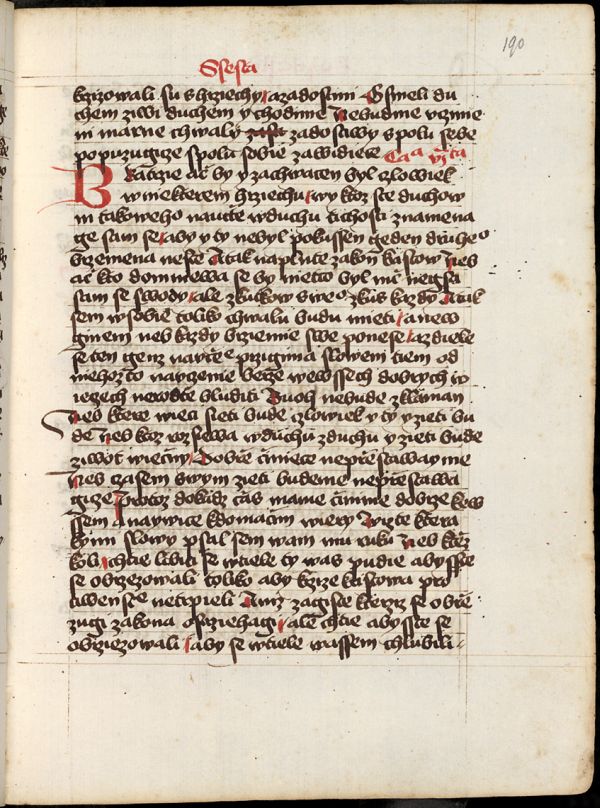 190
Ssesta
krzizowali su s hrziechy a zadostmi Gsmeli du
chem ziwi duchem y chodime Nebudme vczinie
ni marne chwaly zadostiwy spolu sebe
popuzugize spolu sobie zawidiece Caa vjta
Bratrzie ac by y zachwacen byl czlowiek
w niekterem hrziechu wy ktoz ste duchow
ni takoweho naucte w duchu tichosti znamena
ge sam se aby y ty nebyl pokussen geden druheo
brzemena neste A tak naplnte zakon kristow Neb
ac kto domniewa se by nieco byl nic negsa
sam se swody ale skutkow sweo zkus kazdy A tak
sem w sobie toliko chwalu budu mieti a ne w
ginem neb kazdy brziemie swe ponese a zdiele
se ten genz navcee przigima slowem tiem od
niehozto navczenie berze we wssech dobrych w
iezech nerodte bluditi Buoh nebude zklaman
Neb ktere wieci sieti bude czlowiek y ty y zieti bu
de Neb ktoz rozsewa w duchu z duchu y zieti bude
ziwot wieczny Dobrze ciniece neprestawayme
Neb czasem swym zieti budeme neprestawa
gize Protoz dokudz czas mame cinme dobrze ke w
ssem A naywice k domacim wiery Wizte ktera
kymi slowy psal sem wam mu ruku Neb ktoz
koli chtie libiti se w tiele ty was pudie abysste
se obrzezowali toliko aby krzize kristowa pro
tiwenstwe netrpieli Aniz zagiste kterziz se obrze
zugi zakona ostriehagi ale chtie abysste se
obrziezowali aby se w tiele wassem chlubili